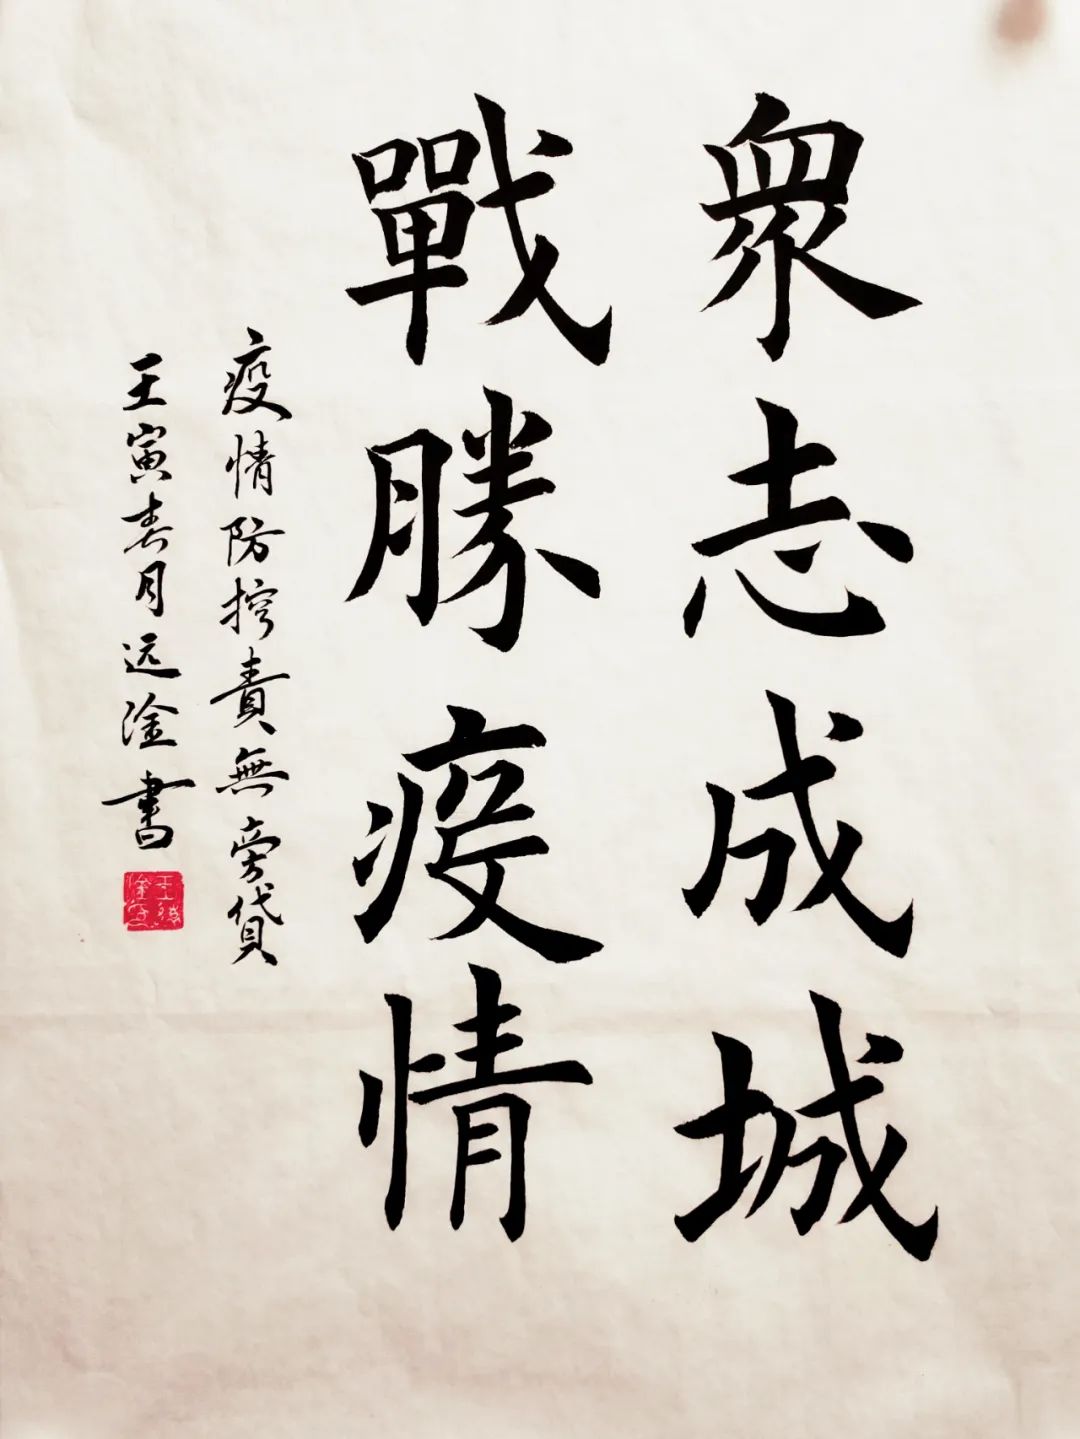 衆志成城
戰勝疫情
疫情防控責無旁貸
壬寅春月远淦書